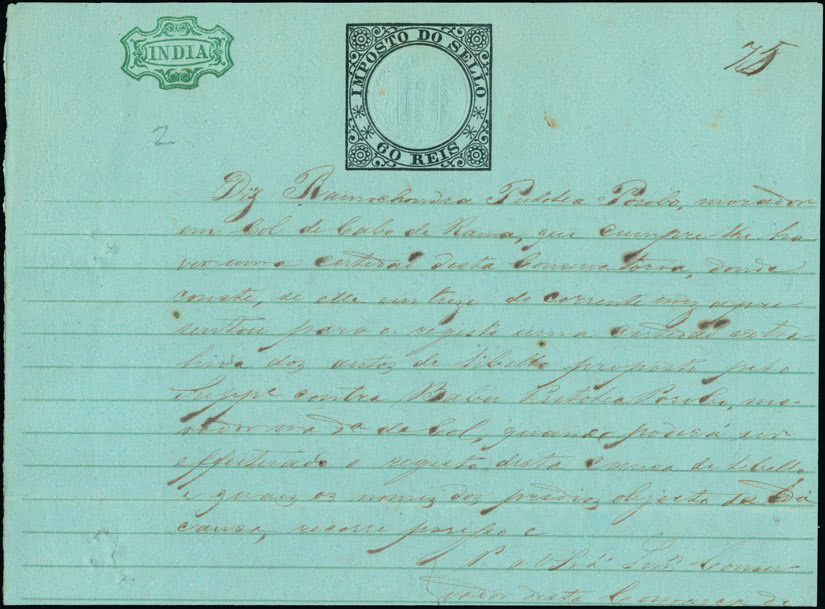 INDIA
IMPOSTO DO SELLO
60 REIS
75
2
Diz Ramachondra Putolea Porobo, morador
em Col de Cabo de Rama, que cumpre-lhe ha-
ver uma certidão desta Conservatoria, donde
conste, se elle em treze do corrente mez apre-
sentou para o registo uma certidão extra-
hida dos autos de libello proposto pelo
Suppe contra Babu Putolea Porobo, mo-
rador na de Col, quando poderá ser
effectuado o registo desta causa de libello
e quaes os nomes dos predios, objecto da
causa, recorre por isso e
P. a V. Sra. Snr. Conser-
vador desta Comarca de